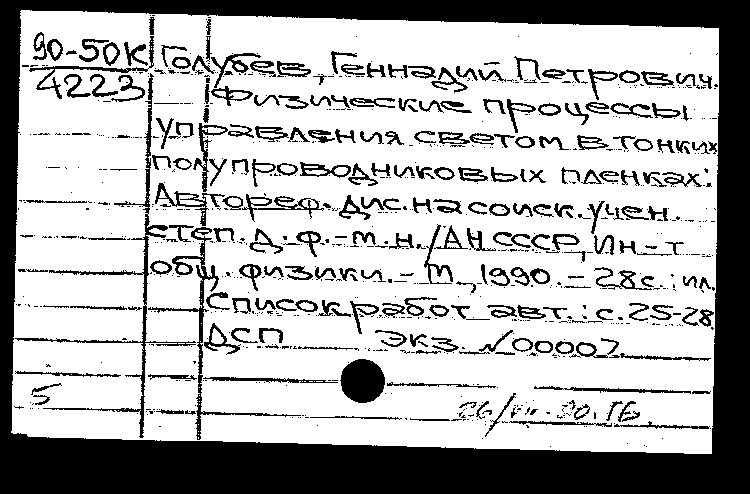 90-50К Голубев, Геннадий Петрович.
4223 Физические процессы
управления светом в тонких
полупроводниковых пленках:
Автореф. дис. на соиск. учен.
степ. д. ф.-м. н. / АН СССР, Ин-т
общ. физики. - М., 1990. - 28с.: ил.
Список работ авт.: с. 25-28
ДСП Экз. №00007.
5
26/VII-90. ГБ.